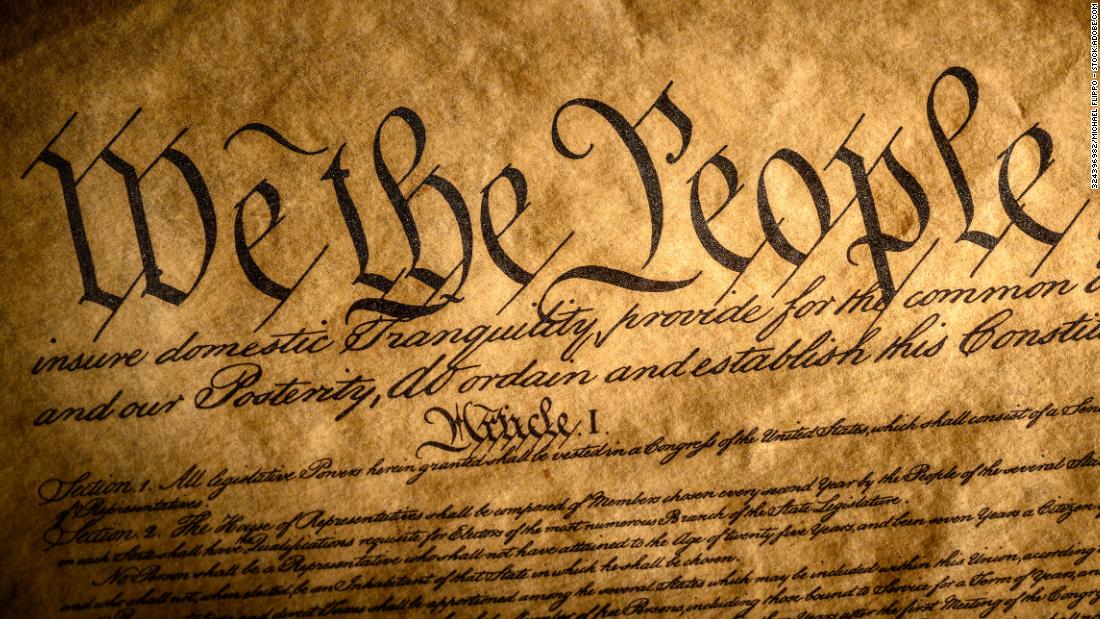 We the People
insure domestic Tranquility, provide for the common
and our Posterity, do ordain and establish this Constitu
Article. I.
Section. 1. All legislative Powers herein granted shall be vested in a Congress of the United States, which shall consist of a Sena
of Representatives.
Section. 2. The House of Representatives shall be composed of Members chosen every second Year by the People of the several Sta
in each State shall have the Qualifications requisite for Electors of the most numerous Branch of the State Legislature.
No Person shall be a Representative who shall not have attained to the Age of twenty five Years, and been seven Years a Citizen
and who shall not, when elected, be an Inhabitant of that State in which he shall be chosen.
and direct Taxes shall be apportioned among the several States which may be included within this Union, according
of free Persons, including those bound to Service for a Term of Years, an
Years after the first Meeting of the Congr
324396982/MICHAEL FLIPPO - STOCK.ADOBE.COM